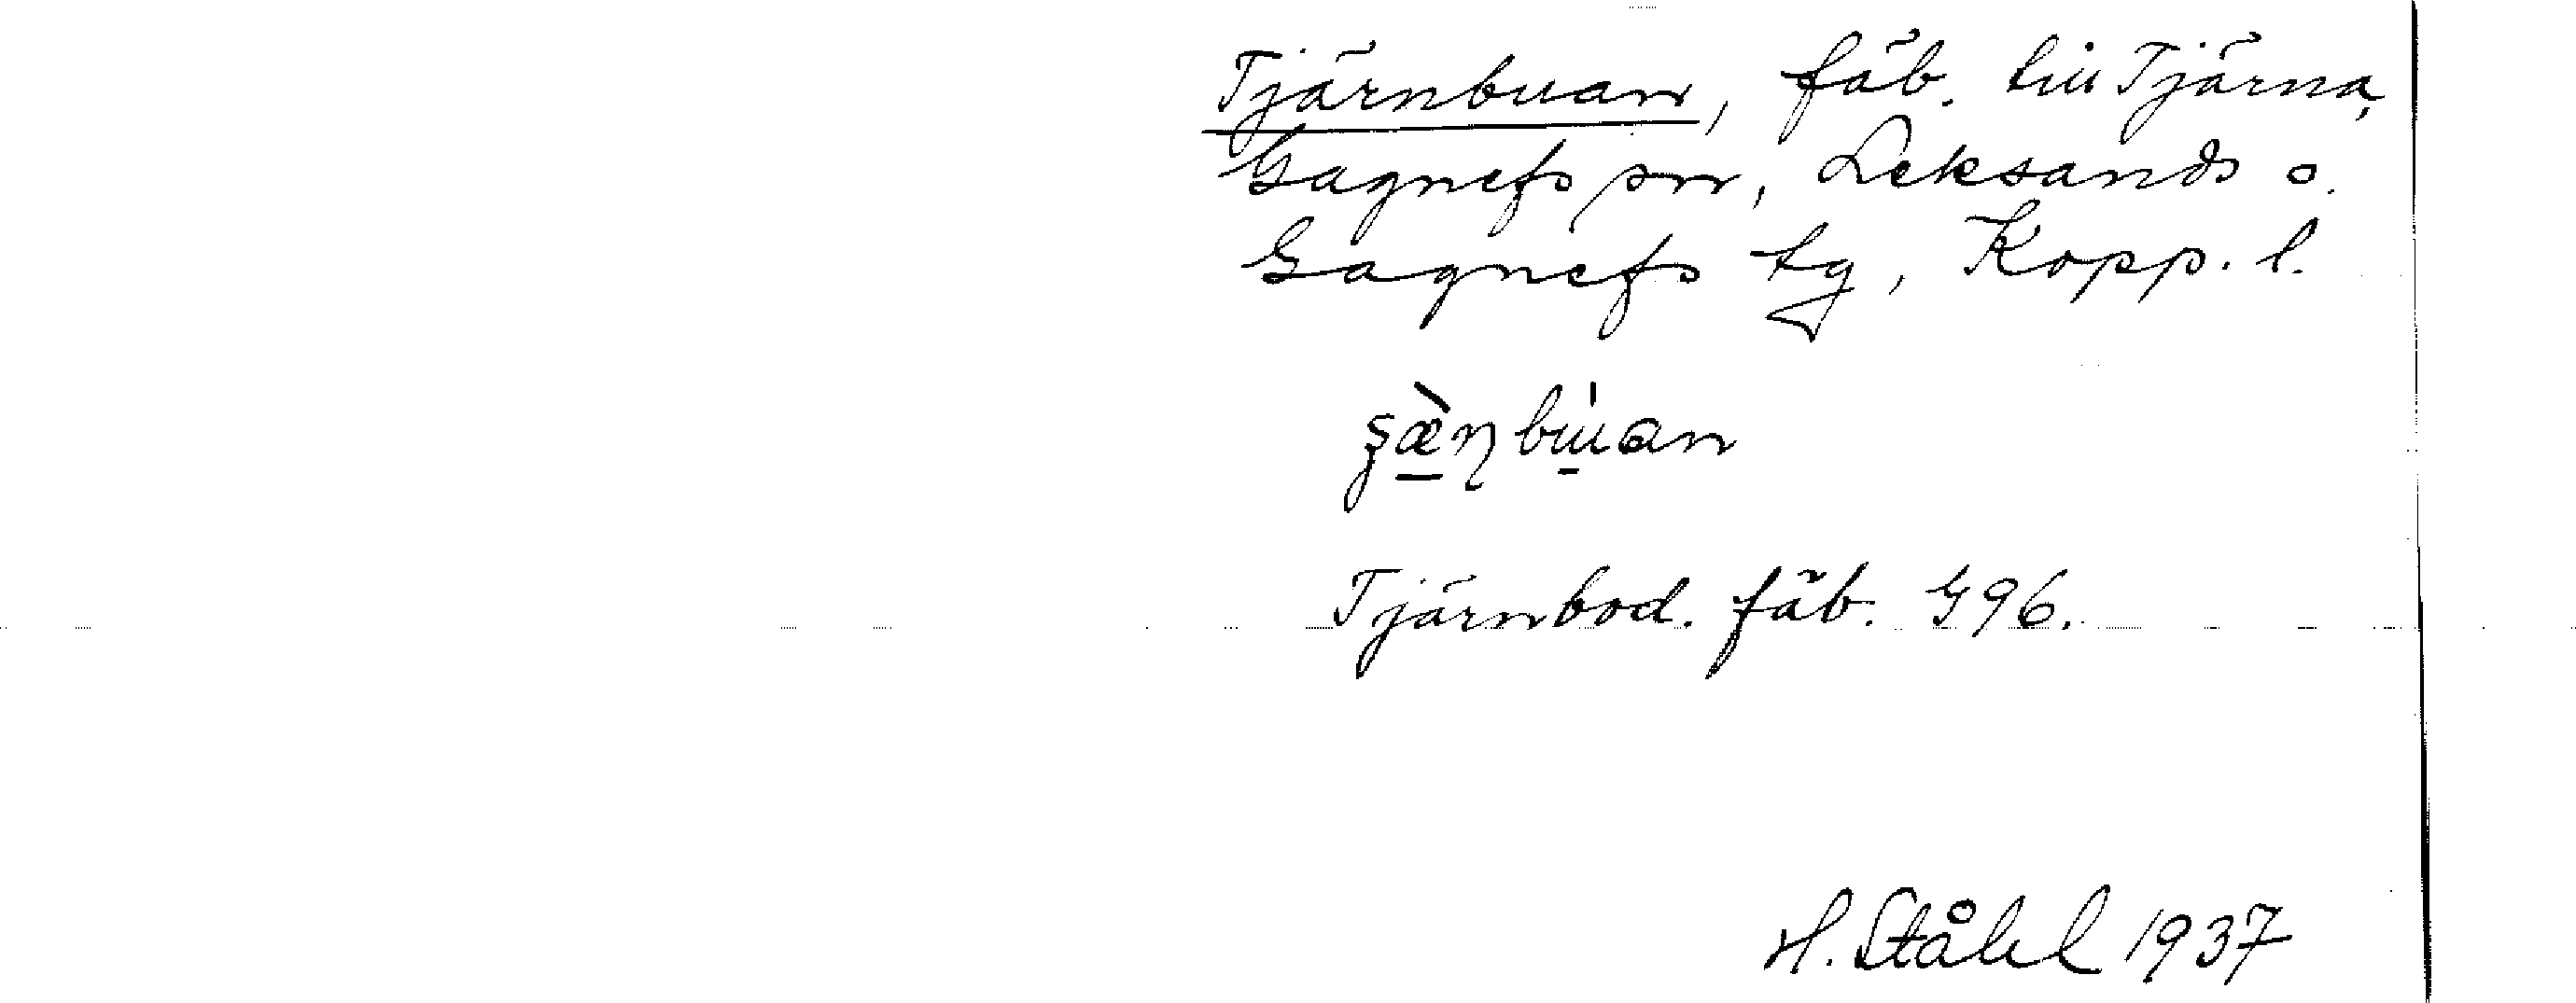 Tjärnbuan, fäb. till Tjärna,
Gagnefs sn, Leksands o.
Gagnefs tg, Kopp. l.
Tjärnbod. fäb. G96.
H. Ståhl 1937